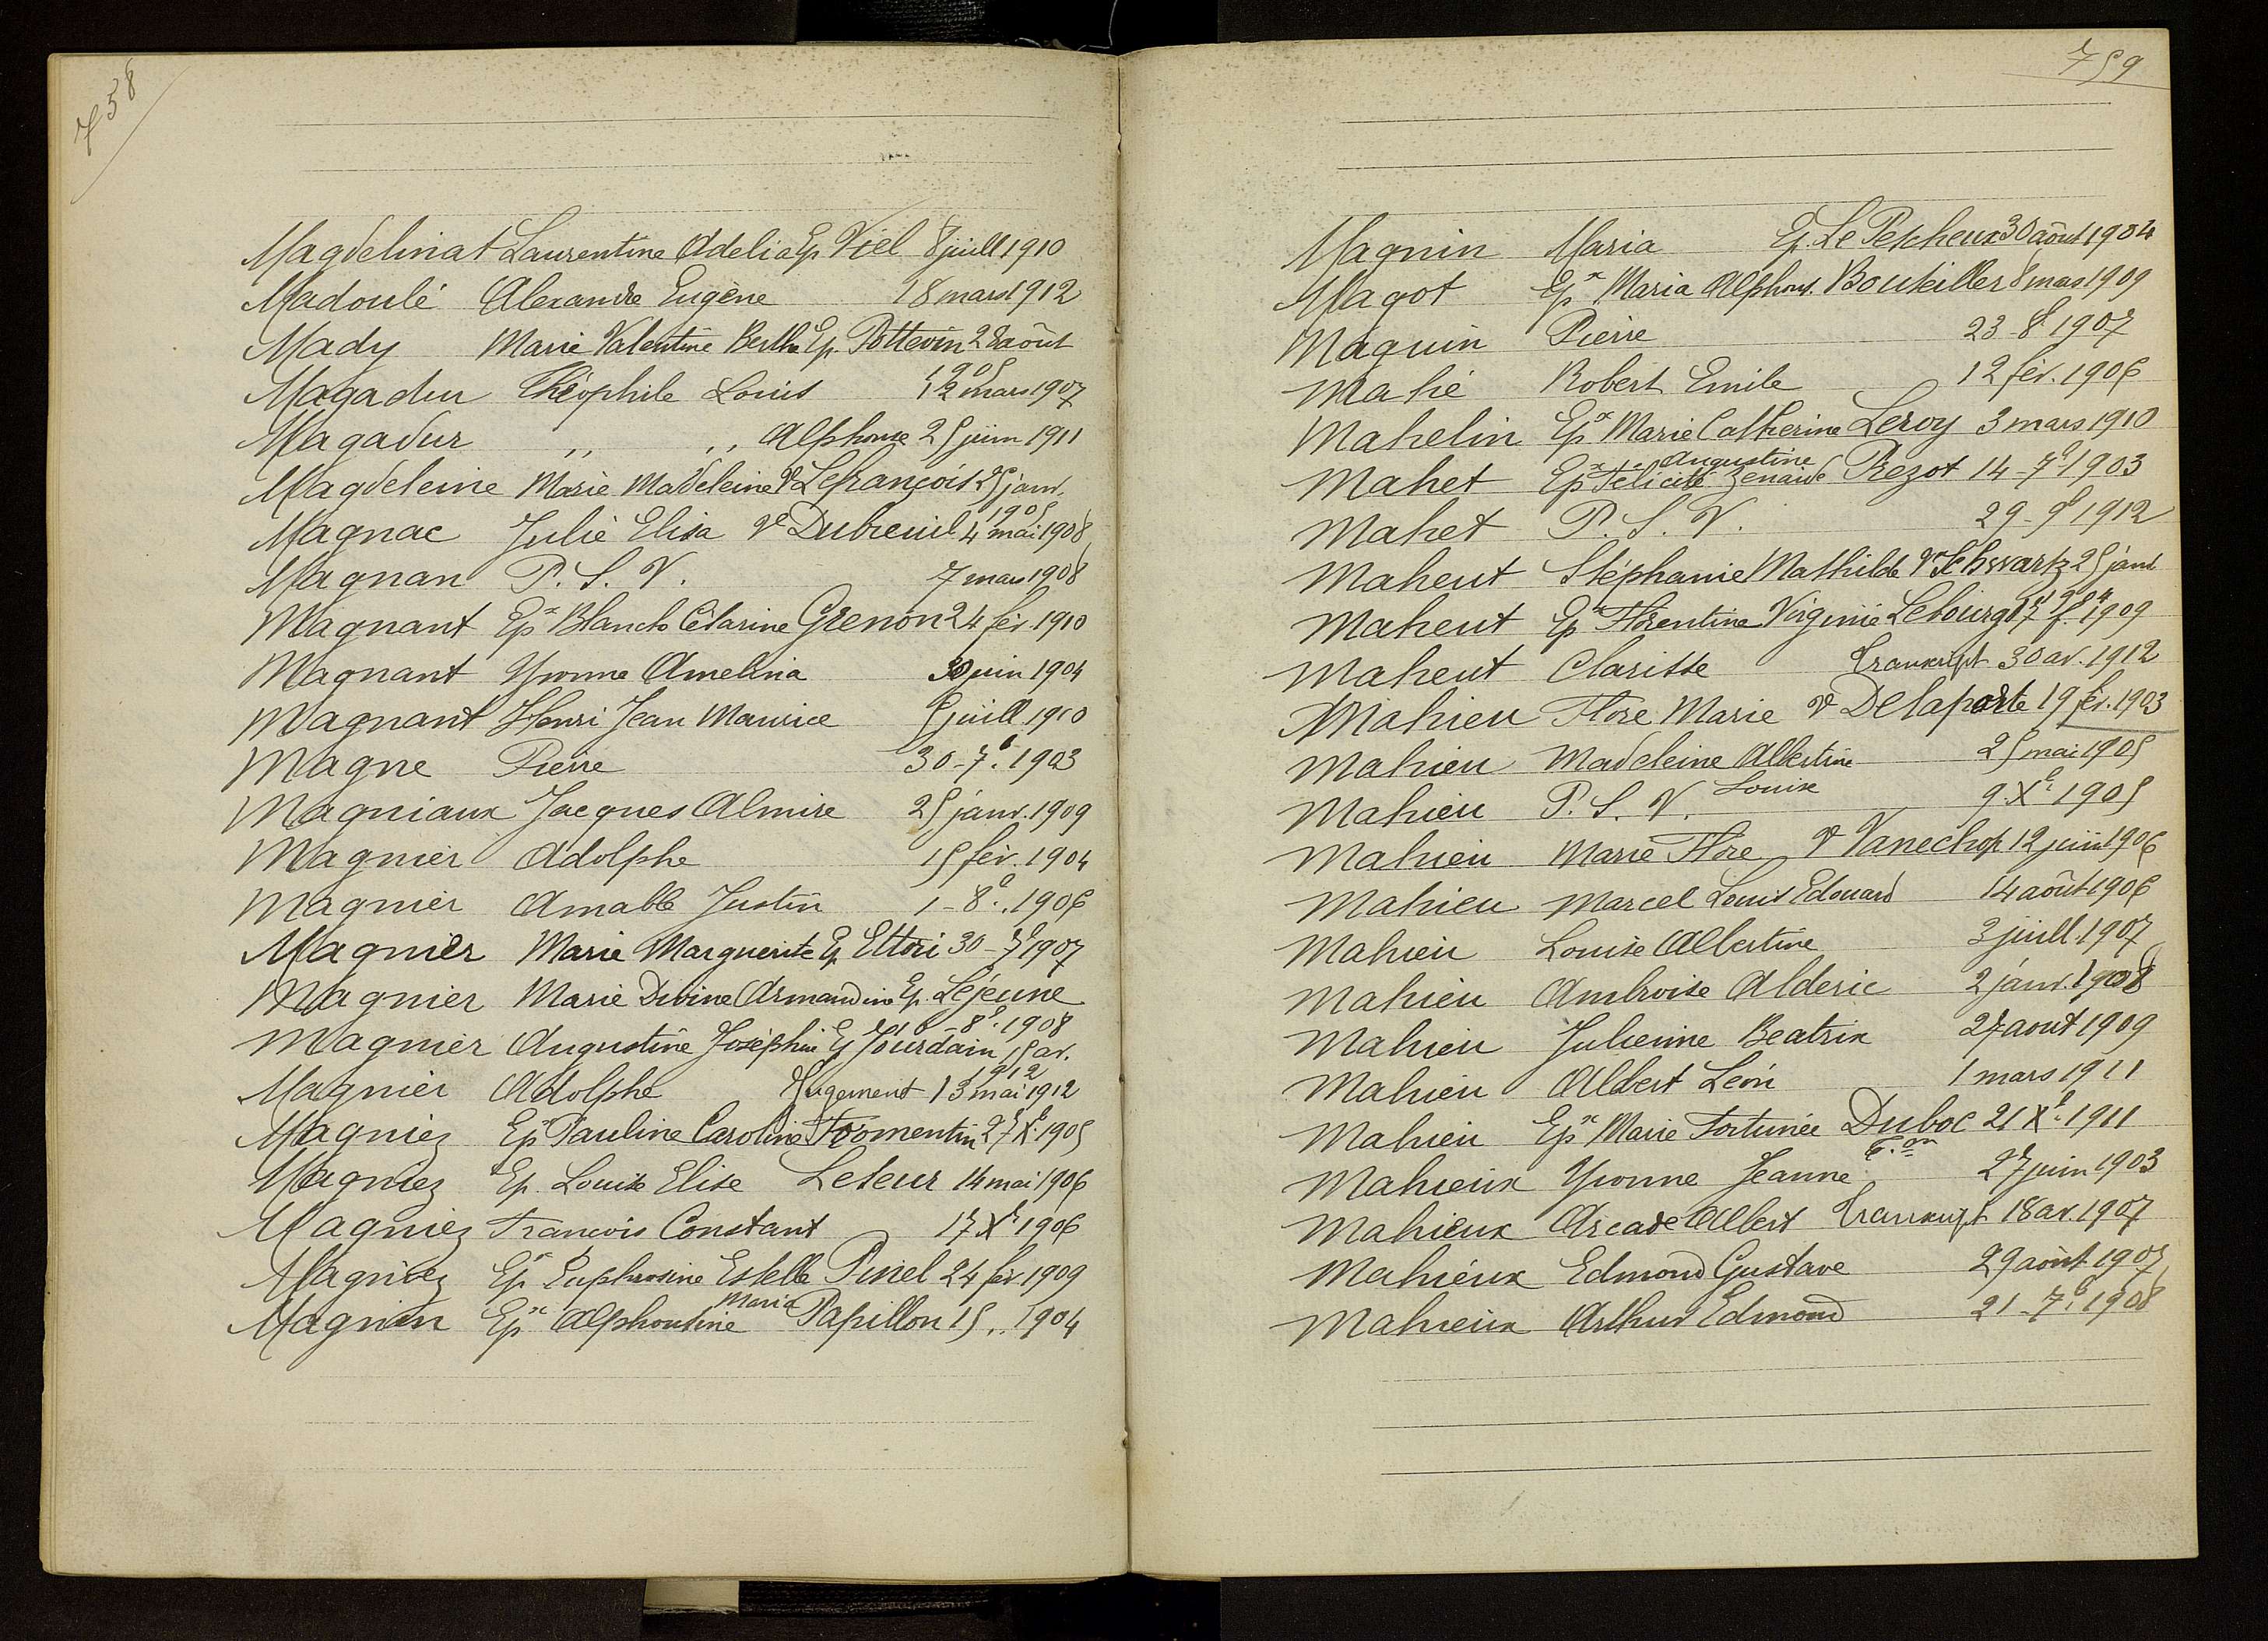 758
Magdelinat Laurentine Adelia Ep. Viel 8 juill 1910
Madoulé Alexandre Eugène 18 mars 1912
Mady Marie Valentine Berthe Ep. Pottevin 28 août 1905
Magadur Théophile Louis 12 mars 1907
Magadur ,, ,, Alphonse 25 juin 1911
Magdeleine Marie Madeleine Ve Lefrançois 25 janv. 1905
Magnac Julie Elisa Ve Dubreuil 4 mai 1908
Magnan P. S. V. 7 mars 1908
Magnant Epx Blanche Césarine Grenon 24 fév. 1910
Magnant Yvonne Amelina juin 1904
Magnant Henri Jean Maurice 5 juill 1910
Magne Pierre 30-7b. 1903
Magniaux Jacques Almire 25 janv. 1909
Magnier Adolphe 15 fév. 1904
Magnier Amable Justin 1-8b. 1906
Magnier Marie Marguerite Ep. Ettori 30-7b 1907
Magnier Marie Divine Armandine Ep. Lejeune
-8b. 1908
Magnier Augustine Joséphine Ep Jourdain 15 av. 1912
Magnier Adolphe Jugement 13 mai 1912
Magniez Epx Pauline Caroline Fromentin 27 Xb. 1905
Magniez Ep. Louise Elise Leseur 14 mai 1906
Magniez François Constant 17 Xb 1906
Magniez Epx Euphrosine Estelle Pinel 24 fév. 1909
Magnin Epx Alphonsine Maria Papillon 15 ,, 1904
759
Magnin Maria Ep. Le Pescheux 30 août 1904
Magot Epx Maria Alphons. Bouteiller 8 mars 1909
Maguin Pierre 23-8b 1907
Mahé Robert Emile 12 fév. 1906
Mahelin Epx Marie Catherine Leroy 3 mars 1910
Mahet Epx Félicité Augustine Zenaïde Prezot 14-7b 1903
Mahet P. S. V. 29-9b 1912
Maheut Stéphanie Mathilde Ve Schwartz 25 janv 1904
Maheut Epx Florentine Virginie Lebourg 17 f. 1909
Maheut Clarisse Transcript. 30 av. 1912
Mahieu Flore Marie Ve Delaporte 19 fév. 1903
Mahieu Madeleine Albertine Louise 25 mai 1905
Mahieu P. S. V. 9. Xb. 1905
Mahieu Marie Flore Ve Vanechop 12 juin 1906
Mahieu Marcel Louis Edouard 14 août 1906
Mahieu Louise Albertine 3 juill. 1907
Mahieu Ambroise Alderic 2 janv. 1908
Mahieu Julienne Beatrix 27 aout 1909
Mahieu Albert Léon 1 mars 1911
Mahieu Epx Marie Fortunée Duboc 21 Xb. 1911
Mahieux Yvonne Jeanne T.on 27 juin 1903
Mahieux Arcade Albert Transcript. 18 av. 1907
Mahieux Edmond Gustave 29 août 1907
Mahieux Arthur Edmond 21-7b. 1908